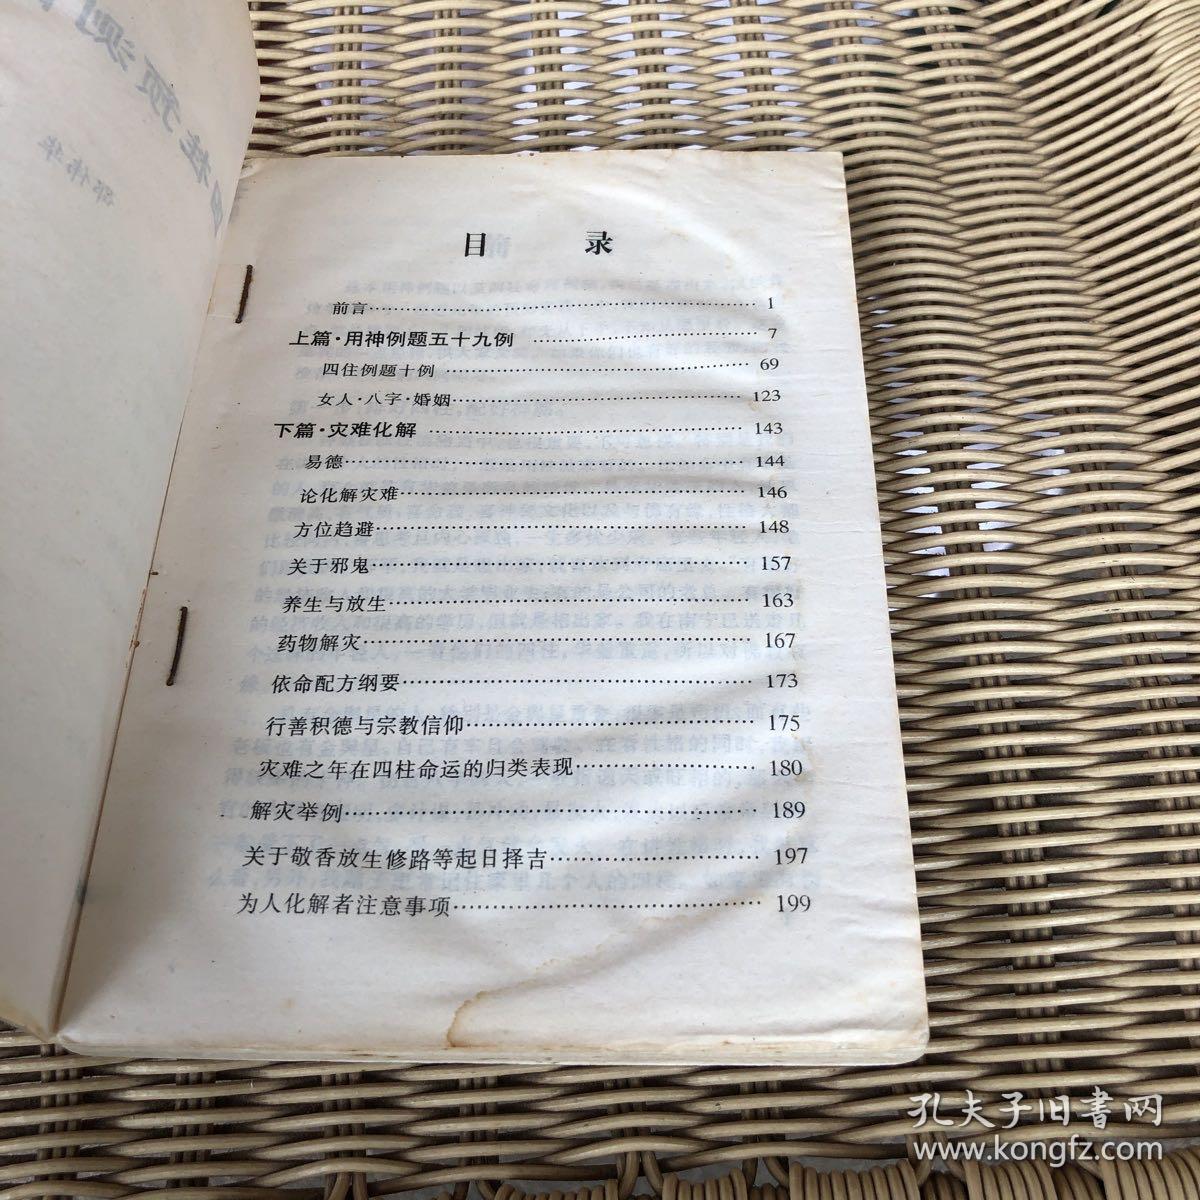 四柱预测
邵伟华
目 录
前言 1
上篇·用神例题五十九例 7
四住例题十例 69
女人·八字·婚姻 123
下篇·灾难化解 143
易德 144
论化解灾难 146
方位趋避 148
关于邪鬼 157
养生与放生 163
药物解灾 167
依命配方纲要 173
行善积德与宗教信仰 175
灾难之年在四柱命运的归类表现 180
解灾举例 189
关于敬香放生修路等起日择吉 197
为人化解者注意事项 199
孔夫子旧书网
www.kongfz.com